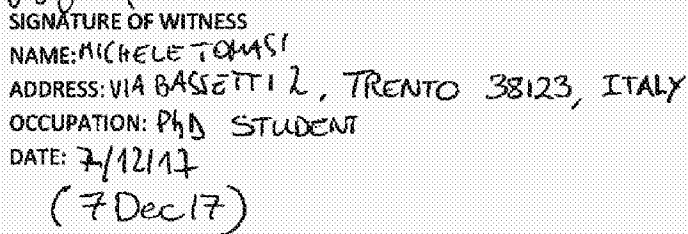 SIGNATURE OF WITNESS
NAME: MICHELE TOMASI
ADDRESS: VIA BASSETTI 2, TRENTO 38123, ITALY
OCCUPATION: PhD STUDENT
DATE: 7/12/17
(7 Dec 17)